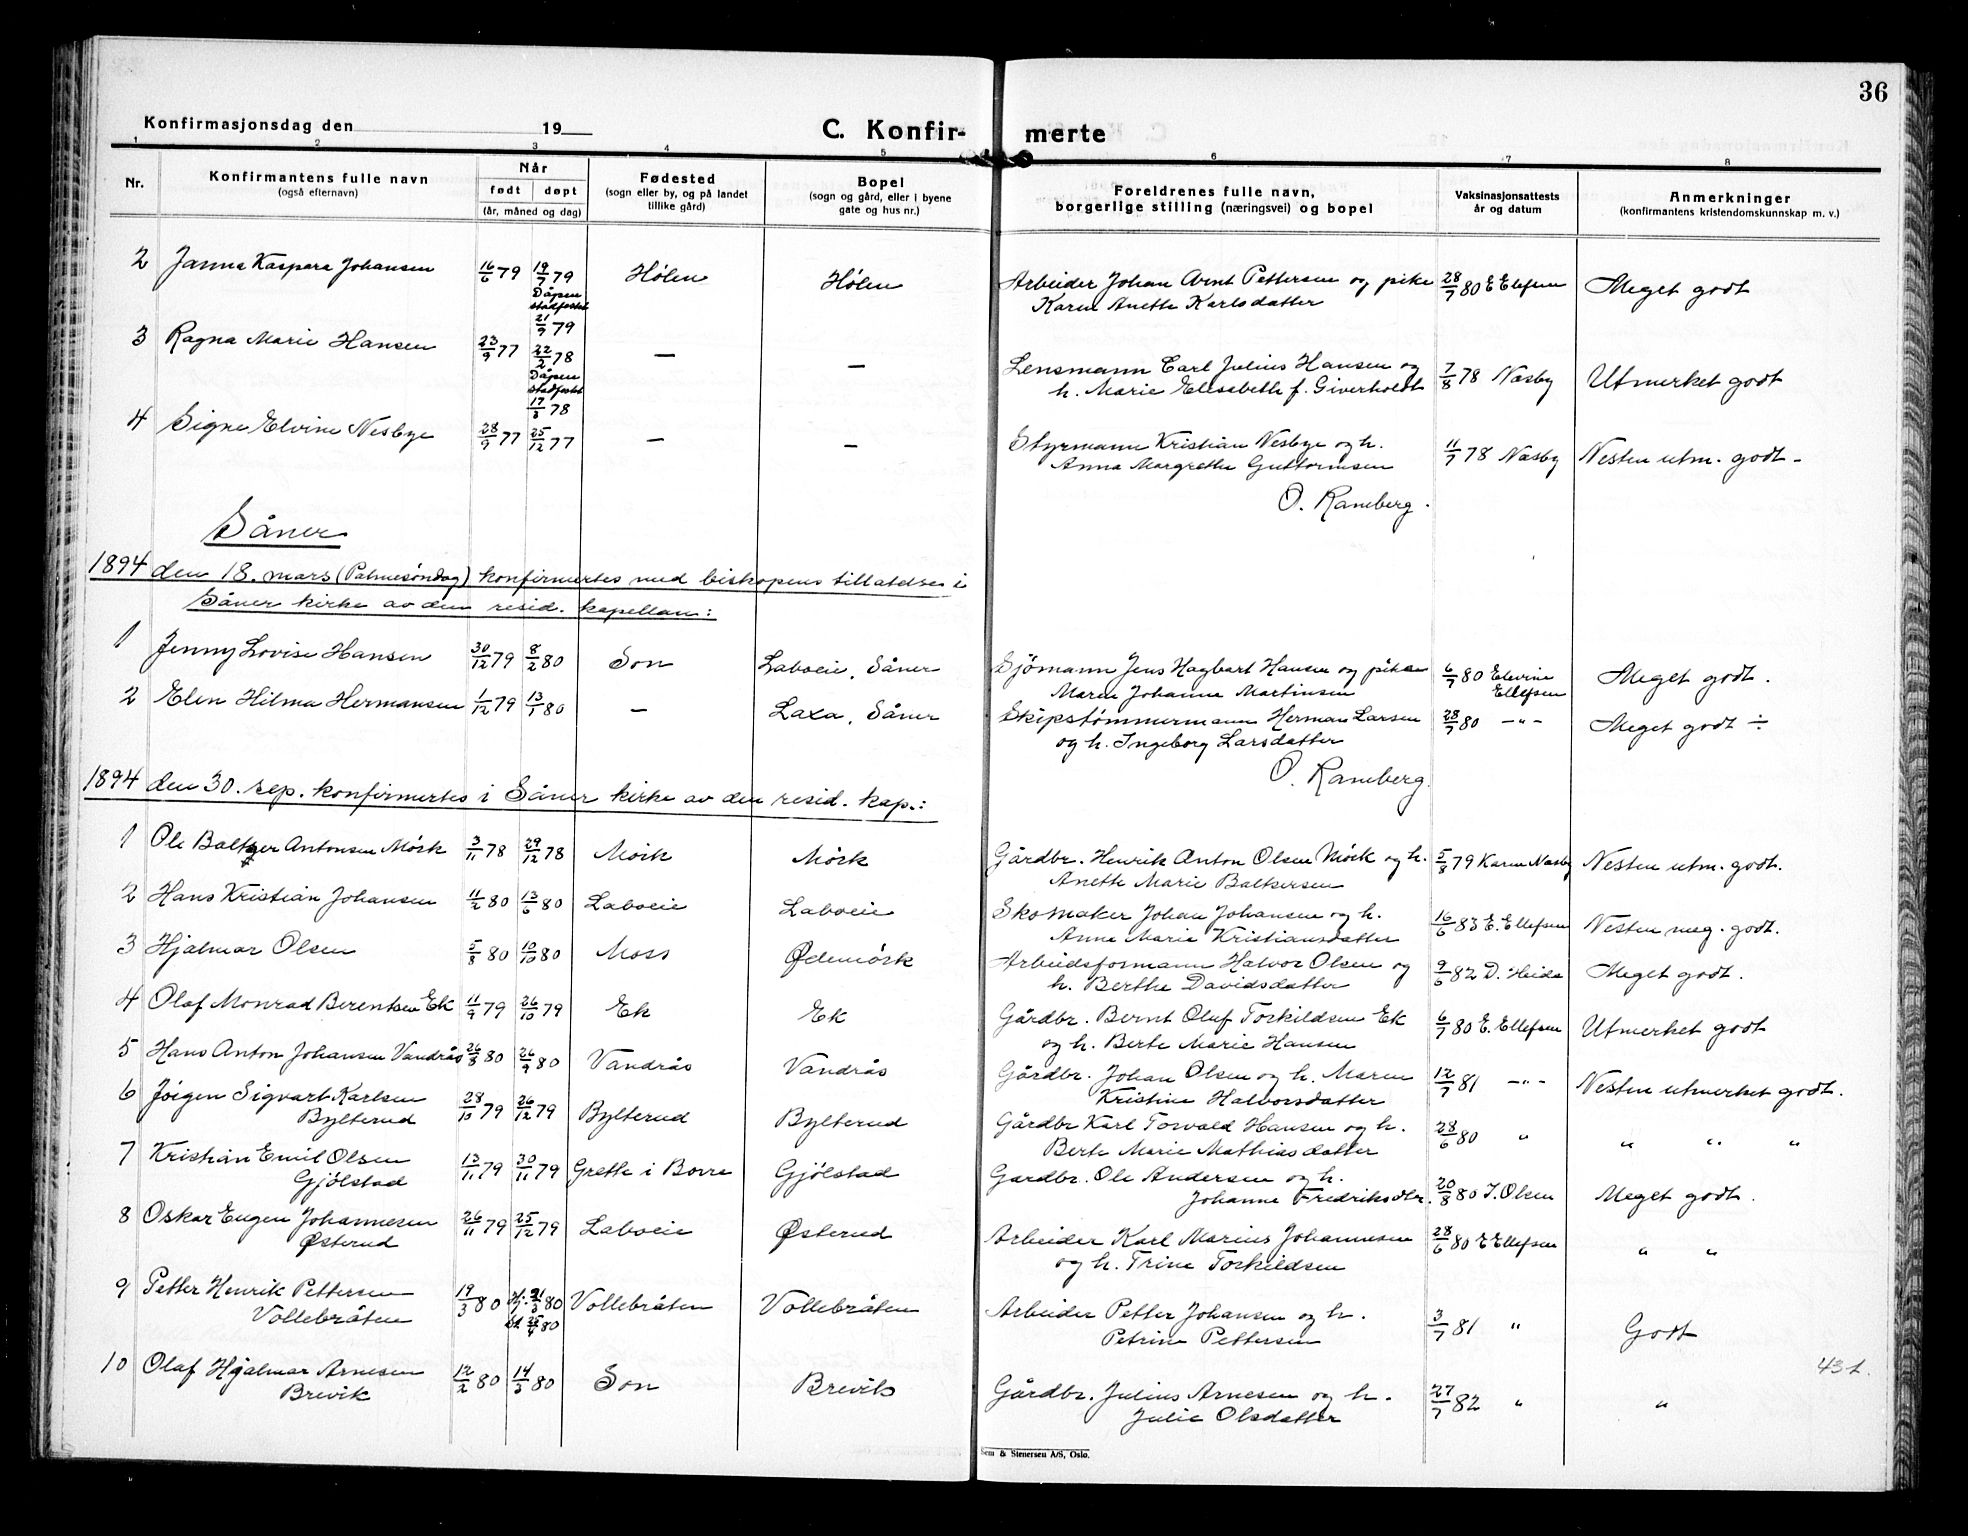 36
Konfirmasjonsdag den 19
C. Konfir- merte
1 2 3 4 5 6 7 8
Nr. Konfirmantens fulle navn (også efternavn) Når født døpt (år, måned og dag) Fødested (sogn eller by, og på landet tillike gård) Bopel (sogn og gård, eller i byene gate og hus nr.) Foreldrenes fulle navn, borgerlige stilling (næringsvei) og bopel Vaksinasjonsattests år og datum Anmerkninger (konfirmantens kristendomskunnskap m. v.)
2 Janna Kaspara Johansen 16/6 79 19/7 79 Hølen Hølen Arbeider Johan Arnt Pettersen og pike 28/7 80 E Ellefsen Meget godt
Dåpen stadfestet 21/9 79 Karen Anette Karlsdatter
3 Ragna Marie Hansen 23/9 77 22/2 78 — — Lensmann Carl Julius Hansen og 7/8 78 Næsby Utmerket godt
Dåpen stadfestet 17/3 78 h. Marie Elisabeth f. Giverholdt
4 Signe Elvine Nesbye 28/9 77 25/12 77 — — Styrmann Kristian Nesbye og h. 11/7 78 Næsby Nesten utm. godt -
Anna Margrethe Guttormsen
O. Ramberg.
Såner
1894 den 18. mars (Palmesøndag) konfirmertes med biskopens tillatelse i
Såner kirke av den resid. kapellan:
1 Jenny Lovise Hansen 30/12 79 8/2 80 Son Laboeie, Såner Sjømann Jens Hagbart Hansen og pike 6/7 80 Elevine Ellefsen Meget godt.
Maren Johanne Martinsen
2 Elen Hilma Hermansen 1/12 79 13/1 80 — Laxa, Såner Skipstømmermann Herman Larsen 28/7 80 -"- Meget godt ÷
og h. Ingeborg Larsdatter
O. Ramberg.
1894 den 30. sep. konfirmertes i Såner kirke av den resid. kap.:
1 Ole Baltzer Antonsen Mørk 3/11 78 29/12 78 Mørk Mørk Gårdbr. Henrik Anton Olsen Mørk og h. 5/8 79 Karen Næsby Nesten utm. godt.
Anette Marie Baltzersen
2 Hans Kristian Johansen 11/2 80 13/6 80 Laboeie Laboeie Skomaker Johan Johansen og h. 16/6 83 E. Ellefsen Nesten meg. godt.
Anne Marie Kristiansdatter
3 Hjalmar Olsen 5/8 80 10/10 80 Moss Ødemørk Arbeidsformann Halvor Olsen og 9/6 82 D. Heida Meget godt.
h. Berthe Davidsdatter
4 Olaf Monrad Berentsen Ek 11/9 79 26/10 79 Ek Ek Gårdbr. Bernt Oluf Torkildsen Ek 6/7 80 E. Ellefsen Utmerket godt
og h. Berte Marie Hansen
5 Hans Anton Johansen Vandrås 26/8 80 26/9 80 Vandrås Vandrås Gårdbr. Johan Olsen og h. Maren 12/7 81 -"- Nesten utmerket godt.
Kristine Halvorsdatter
6 Jørgen Sigvart Karlsen 28/10 79 26/12 79 Bylterud Bylterud Gårdbr Karl Torvald Hansen og h. 28/6 80 " " " "
Bylterud Berte Marie Mathiasdatter
7 Kristian Emil Olsen 13/11 79 30/11 79 Grette i Borre Gjølstad Gardbr. Ole Andersen og h. 20/8 80 J. Olsen Meget godt.
Gjølstad Johanne Fredriksdtr.
8 Oskar Eugen Johannesen 26/11 79 25/12 79 Laboeie Østerud Arbeider Karl Marius Johannesen 28/6 80 E Ellefsen " "
Østerud og h. Trine Torkildsen
9 Petter Henrik Pettersen 19/3 80 Hj. 21/3 80 Vollebråten Vollebråten Arbeider Petter Johansen og h. 3/7 81 " Godt
Vollebråten 80 Petrine Pettersen
10 Olaf Hjalmar Arnesen 12/2 80 14/3 80 Son Brevik Gårdbr. Julius Arnesen og h. 27/7 82 " "
Brevik Julie Olsdatter
431.
Sem & Stenersen A/S, Oslo.